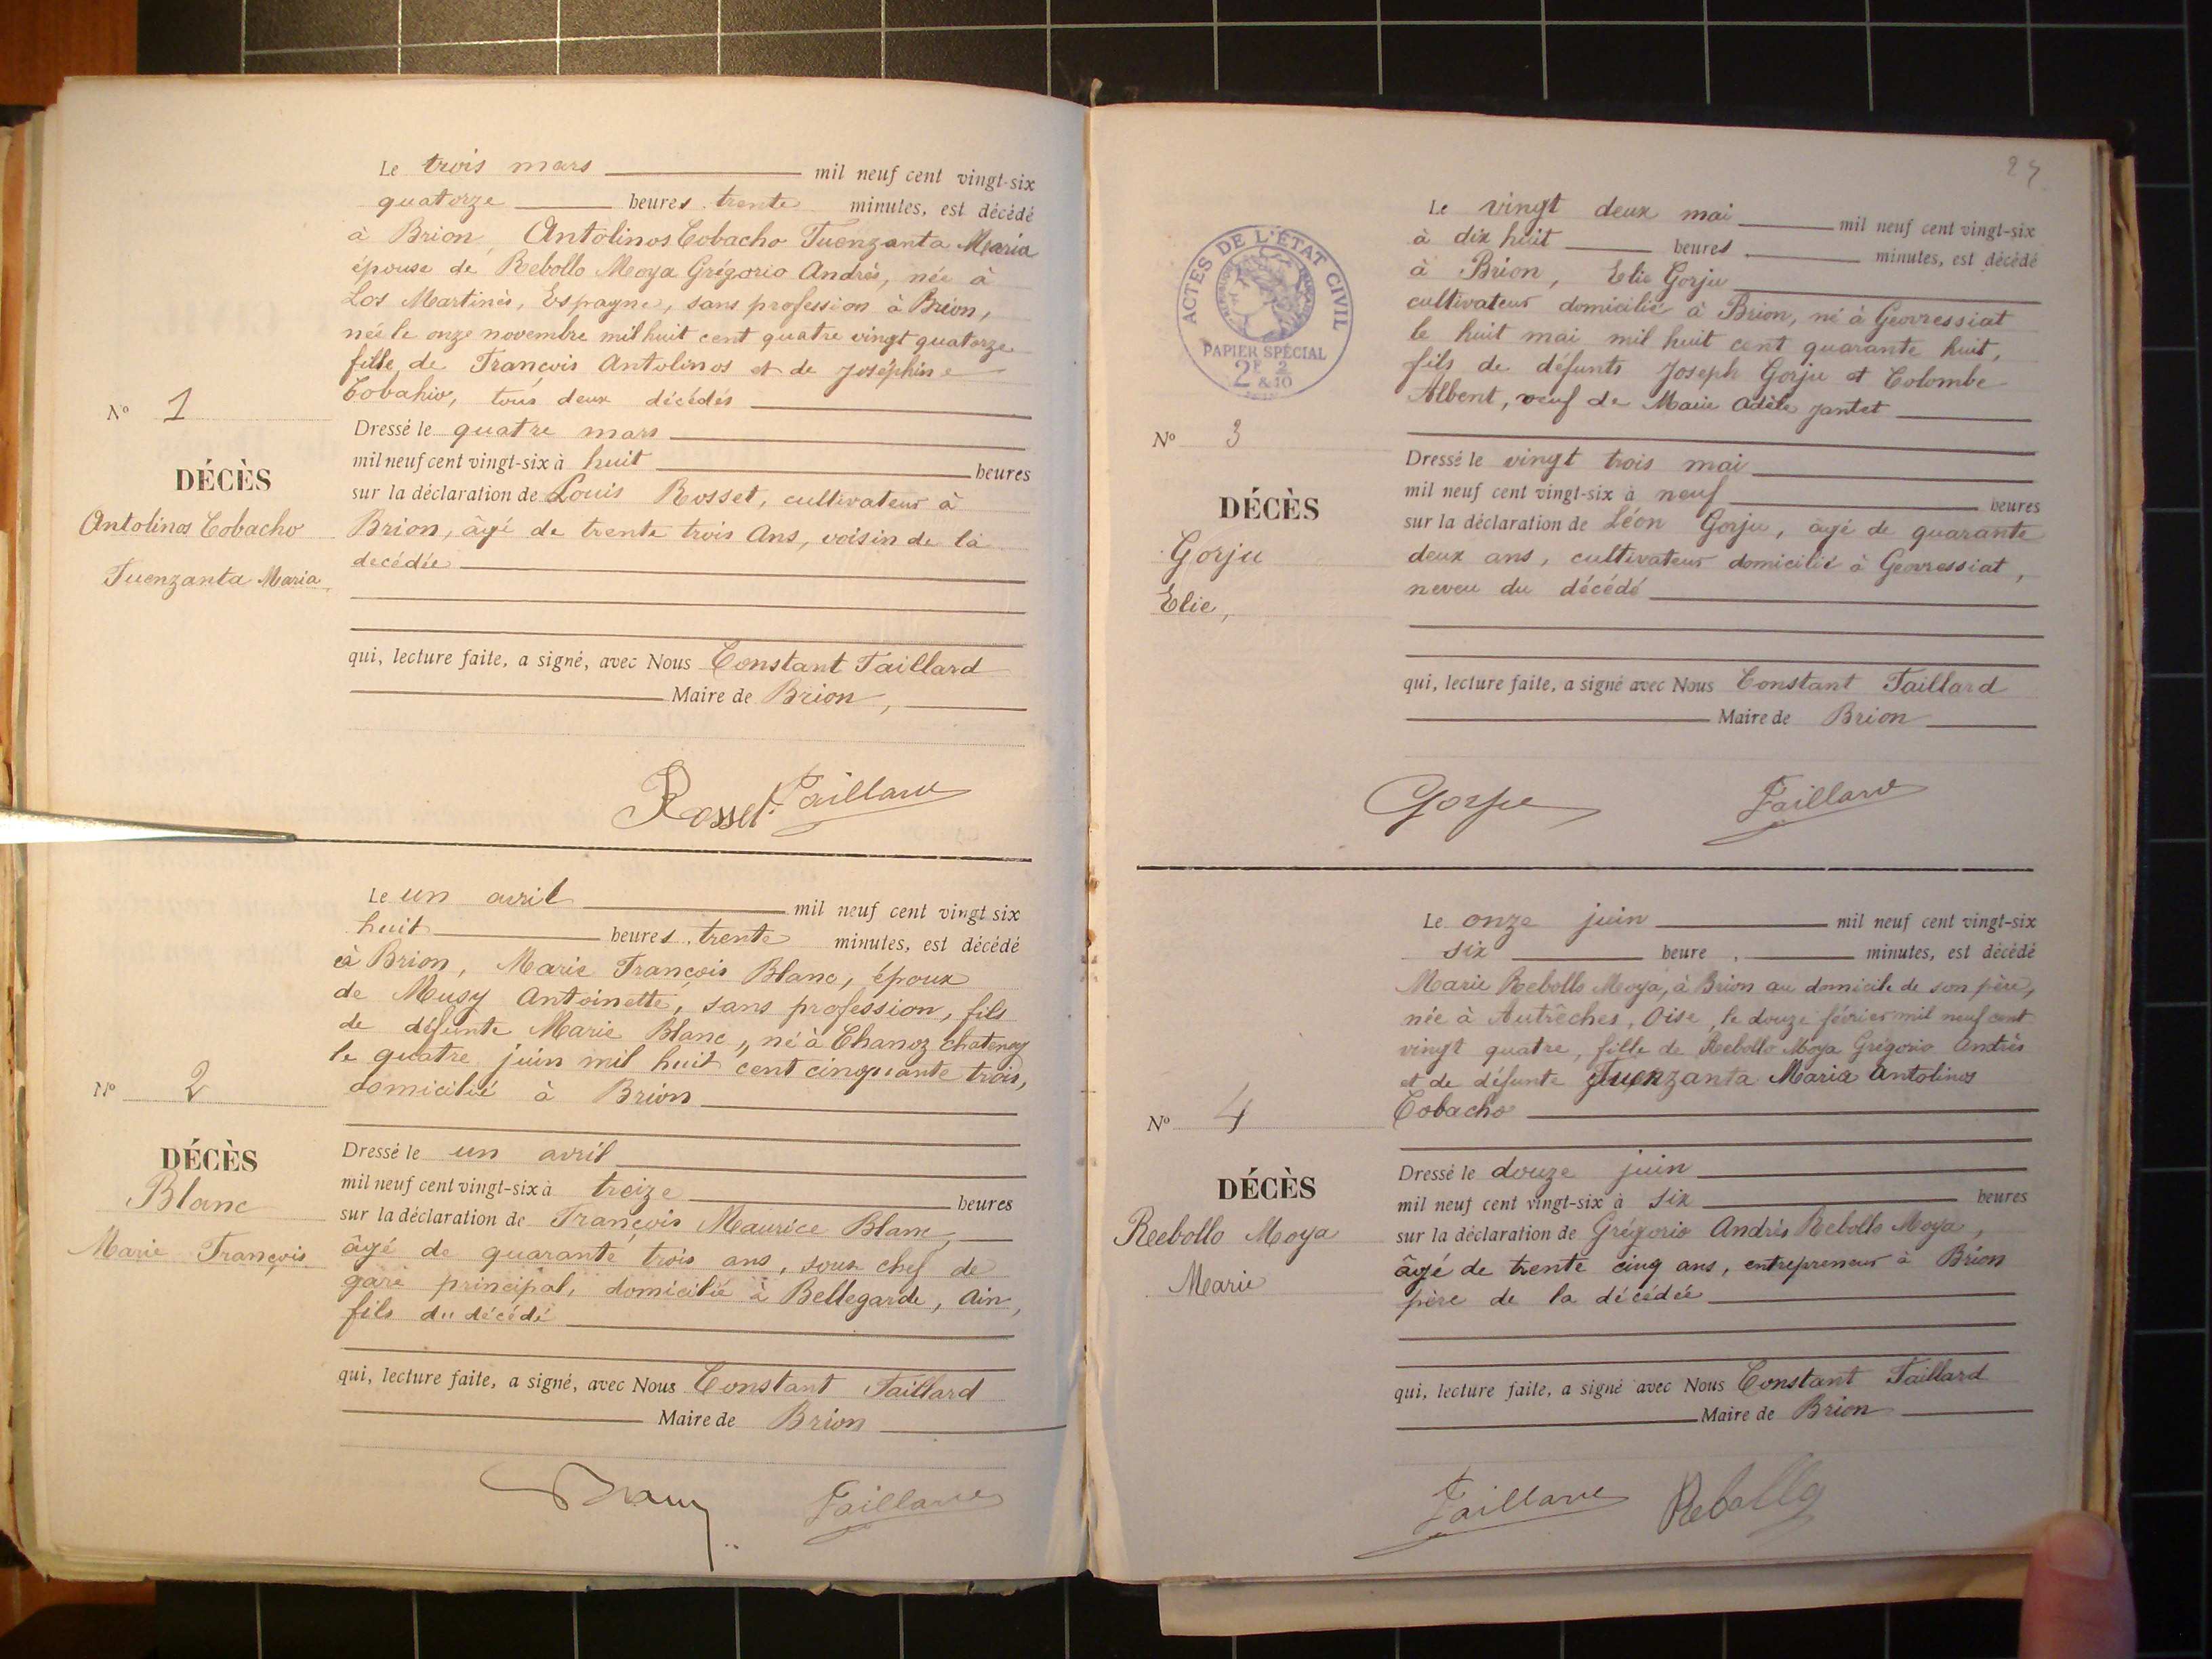 Le trois mars mil neuf cent vingt-six
quatorze heures trente minutes, est décédé
à Brion, Antolinos Cobacho Fuenzanta Maria
épouse de Rebollo Moya Grégorio Andrès, née à
Los Martinès, Espagne, sans profession à Brion,
née le onze novembre mil huit cent quatre vingt quatorze
fille de François Antolinos et de Joséphine
Cobahio, tous deux décédés
Nº 1
Dressé le quatre mars
mil neuf cent vingt-six à huit heures
DÉCÈS
sur la déclaration de Louis Rosset, cultivateur à
Antolinos Cobacho
Brion, âgé de trente trois ans, voisin de la
décédée
Fuenzanta Maria
qui, lecture faite, a signé, avec Nous Constant Taillard
Maire de Brion,
Rosset Taillard
Le un avril mil neuf cent vingt six
huit heures, trente minutes, est décédé
à Brion, Marie François Blanc, époux
de Musy Antoinette, sans profession, fils
de défunte Marie Blanc, né à Chanoz Chatenay
le quatre juin mil huit cent cinquante trois,
domicilié à Brion
Nº 2
Dressé le un avril
DÉCÈS
mil neuf cent vingt-six à treize heures
Blanc
sur la déclaration de François Maurice Blanc,
Marie François
âgé de quarante trois ans, sous chef de
gare principal, domicilié à Bellegarde, Ain,
fils du décédé
qui, lecture faite, a signé, avec Nous Constant Taillard
Maire de Brion
Taillard
Le vingt deux mai mil neuf cent vingt-six
à dix huit heures minutes, est décédé
à Brion, Elie Gorju
cultivateur domicilié à Brion, né à Geovressiat
le huit mai mil huit cent quarante huit,
fils de défunts Joseph Gorju et Colombe
Albent, veuf de Marie Adèle Jantet
ACTES DE L'ÉTAT CIVIL
PAPIER SPÉCIAL
2F & 2/10
Nº 3
Dressé le vingt trois mai
mil neuf cent vingt-six à neuf heures
DÉCÈS
sur la déclaration de Léon Gorju, âgé de quarante
Gorju
deux ans, cultivateur domicilié à Geovressiat,
Elie,
neveu du décédé
qui, lecture faite, a signé avec Nous Constant Taillard
Maire de Brion
Gorju Taillard
Le onze juin mil neuf cent vingt-six
six heure, minutes, est décédé
Marie Rebollo Moya, à Brion au domicile de son père,
née à Autrêches, Oise, le douze février mil neuf cent
vingt quatre, fille de Rebollo Moya Grégorio Andrès
et de défunte Fuenzanta Maria Antolinos
Cobacho
Nº 4
Dressé le douze juin
DÉCÈS
mil neuf cent vingt-six à six heures
Rebollo Moya
sur la déclaration de Grégorio Andrès Rebollo Moya,
âgé de trente cinq ans, entrepreneur à Brion
Marie
père de la décédée
qui, lecture faite, a signé avec Nous Constant Taillard
Maire de Brion
Taillard Rebollo